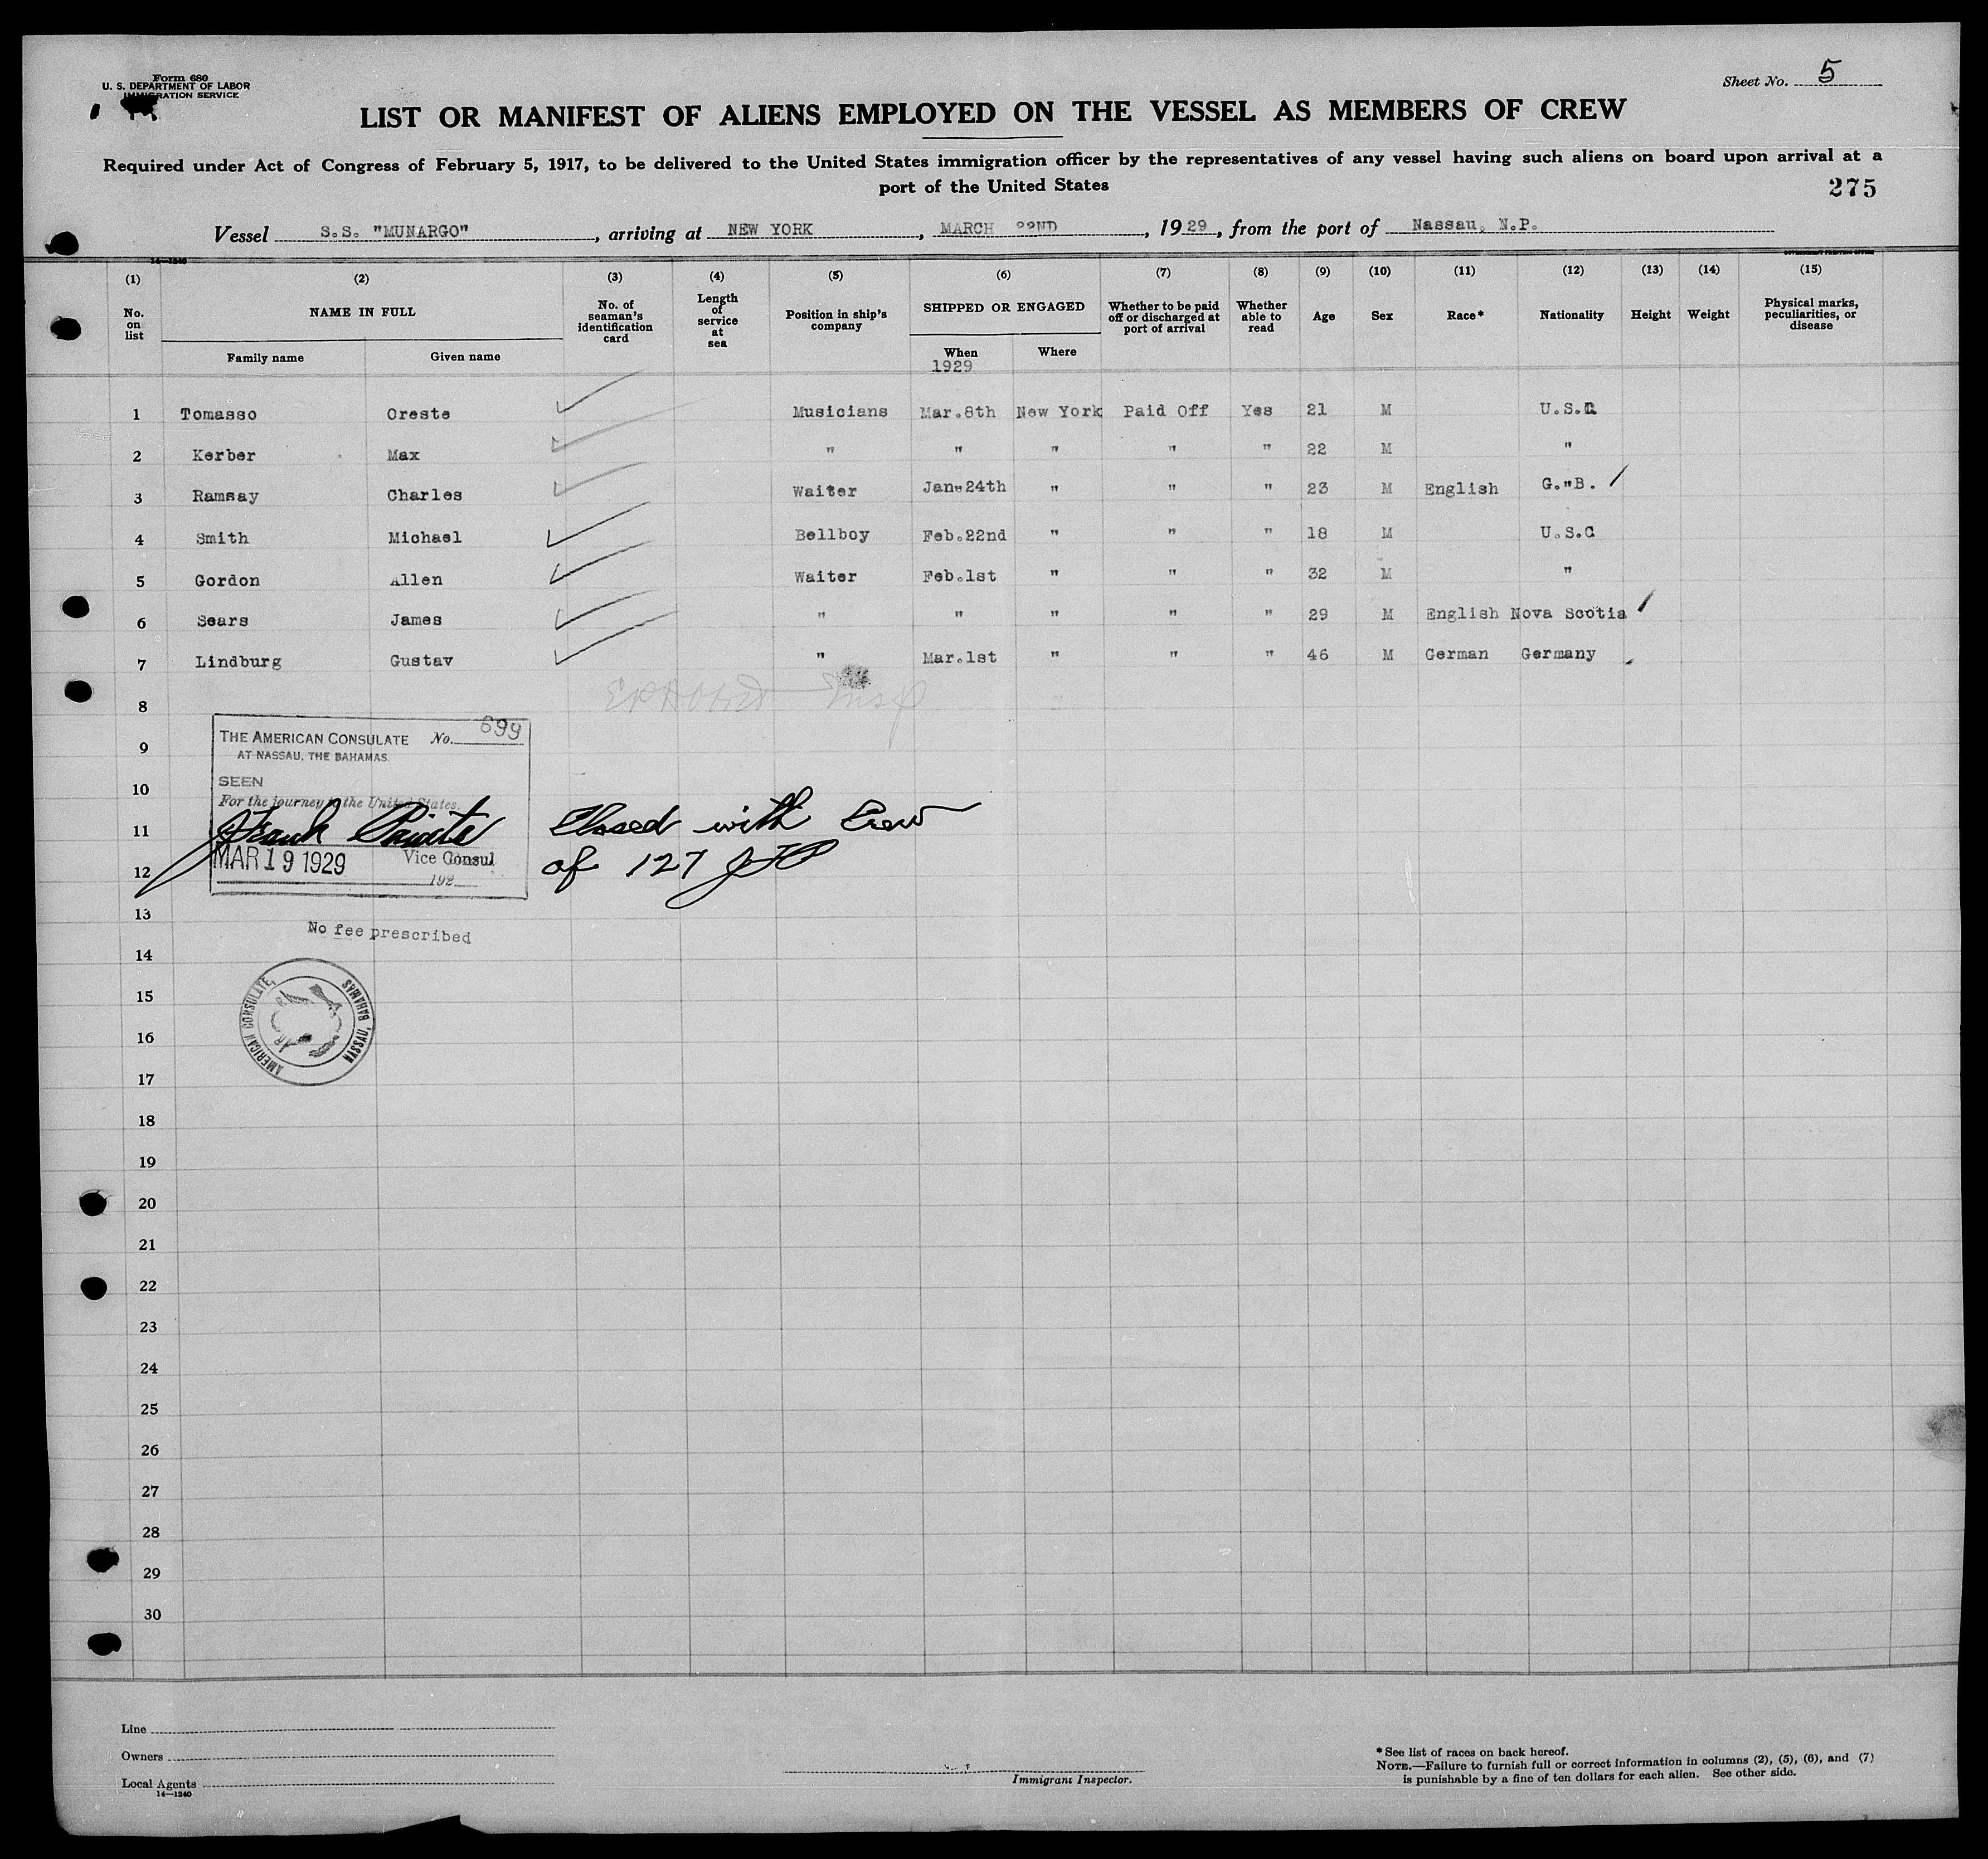 Form 680
U. S. DEPARTMENT OF LABOR
IMMIGRATION SERVICE
Sheet No. 5
LIST OR MANIFEST OF ALIENS EMPLOYED ON THE VESSEL AS MEMBERS OF CREW
Required under Act of Congress of February 5, 1917, to be delivered to the United States immigration officer by the representatives of any vessel having such aliens on board upon arrival at a
port of the United States
275
Vessel S.S. "MUNARGO", arriving at NEW YORK, MARCH 22ND, 1929, from the port of Nassau, N.P.
14—1240
GOVERNMENT PRINTING OFFICE
(1) (2) (3) (4) (5) (6) (7) (8) (9) (10) (11) (12) (13) (14) (15)
No. on list NAME IN FULL No. of seaman's identification card Length of service at sea Position in ship's company SHIPPED OR ENGAGED Whether to be paid off or discharged at port of arrival Whether able to read Age Sex Race* Nationality Height Weight Physical marks, peculiarities, or disease
Family name Given name When Where
1929
1 Tomasso Oreste Musicians Mar.8th New York Paid Off Yes 21 M U.S.C
2 Kerber Max " " " " " 22 M "
3 Ramsay Charles Waiter Jan.24th " " " 23 M English G."B.
4 Smith Michael Bellboy Feb.22nd " " " 18 M U.S.C
5 Gordon Allen Waiter Feb.1st " " " 32 M "
6 Sears James " " " " " 29 M English Nova Scotia
7 Lindburg Gustav " Mar.1st " " " 46 M German Germany
8
9
10
11
12
13
14
15
16
17
18
19
20
21
22
23
24
25
26
27
28
29
30
THE AMERICAN CONSULATE No. 699
AT NASSAU, THE BAHAMAS.
SEEN
For the journey to the United States.
MAR 19 1929 Vice Consul
192
Closed with Crew
of 127
No fee prescribed
AMERICAN CONSULATE, NASSAU, BAHAMAS
Line
Owners
Local Agents
14—1240
Immigrant Inspector.
*See list of races on back hereof.
NOTE.—Failure to furnish full or correct information in columns (2), (5), (6), and (7)
is punishable by a fine of ten dollars for each alien. See other side.